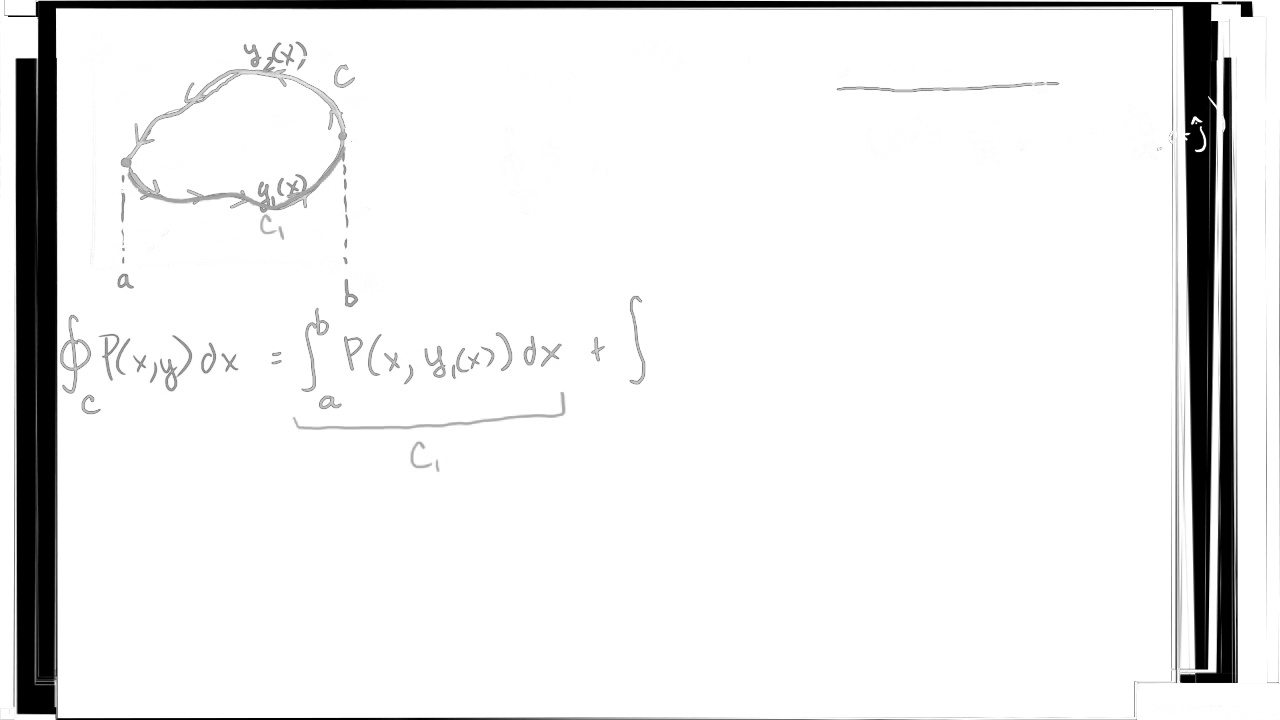 y₂(x)
C
y₁(x)
C₁
a
b
ĵ
∮_C P(x,y) dx = ∫_a^b P(x, y₁(x)) dx + ∫
C₁